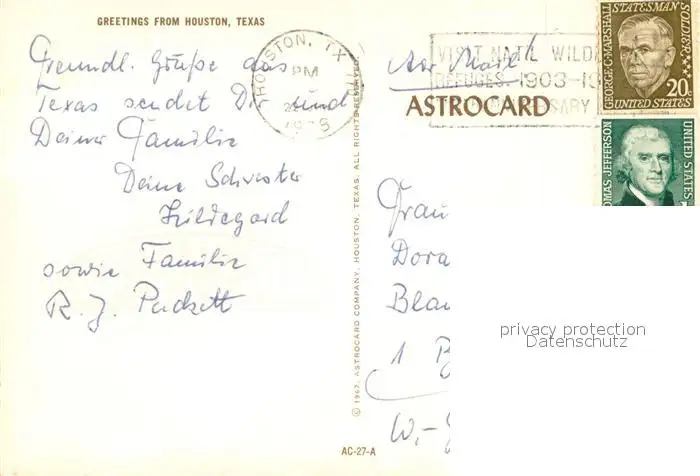 GREETINGS FROM HOUSTON, TEXAS
Freundl. Grüße aus
Texas sendet Dir und
Deiner Familie
Deine Schwester
Hildegard
sowie Familie
R. J. Puckett
HOUSTON, TX
PM
VISIT NAT'L WILD
REFUGES. 1903-1
Air Mail
ASTROCARD
GEORGE C. MARSHALL
STATESMAN
SOLDIER
20c
UNITED STATES
THOMAS JEFFERSON
UNITED STATES
Frau
Dora
Blau
1 B
W.-
© 1967, ASTROCARD COMPANY, HOUSTON, TEXAS. ALL RIGHTS RESERVED
AC-27-A
privacy protection
Datenschutz